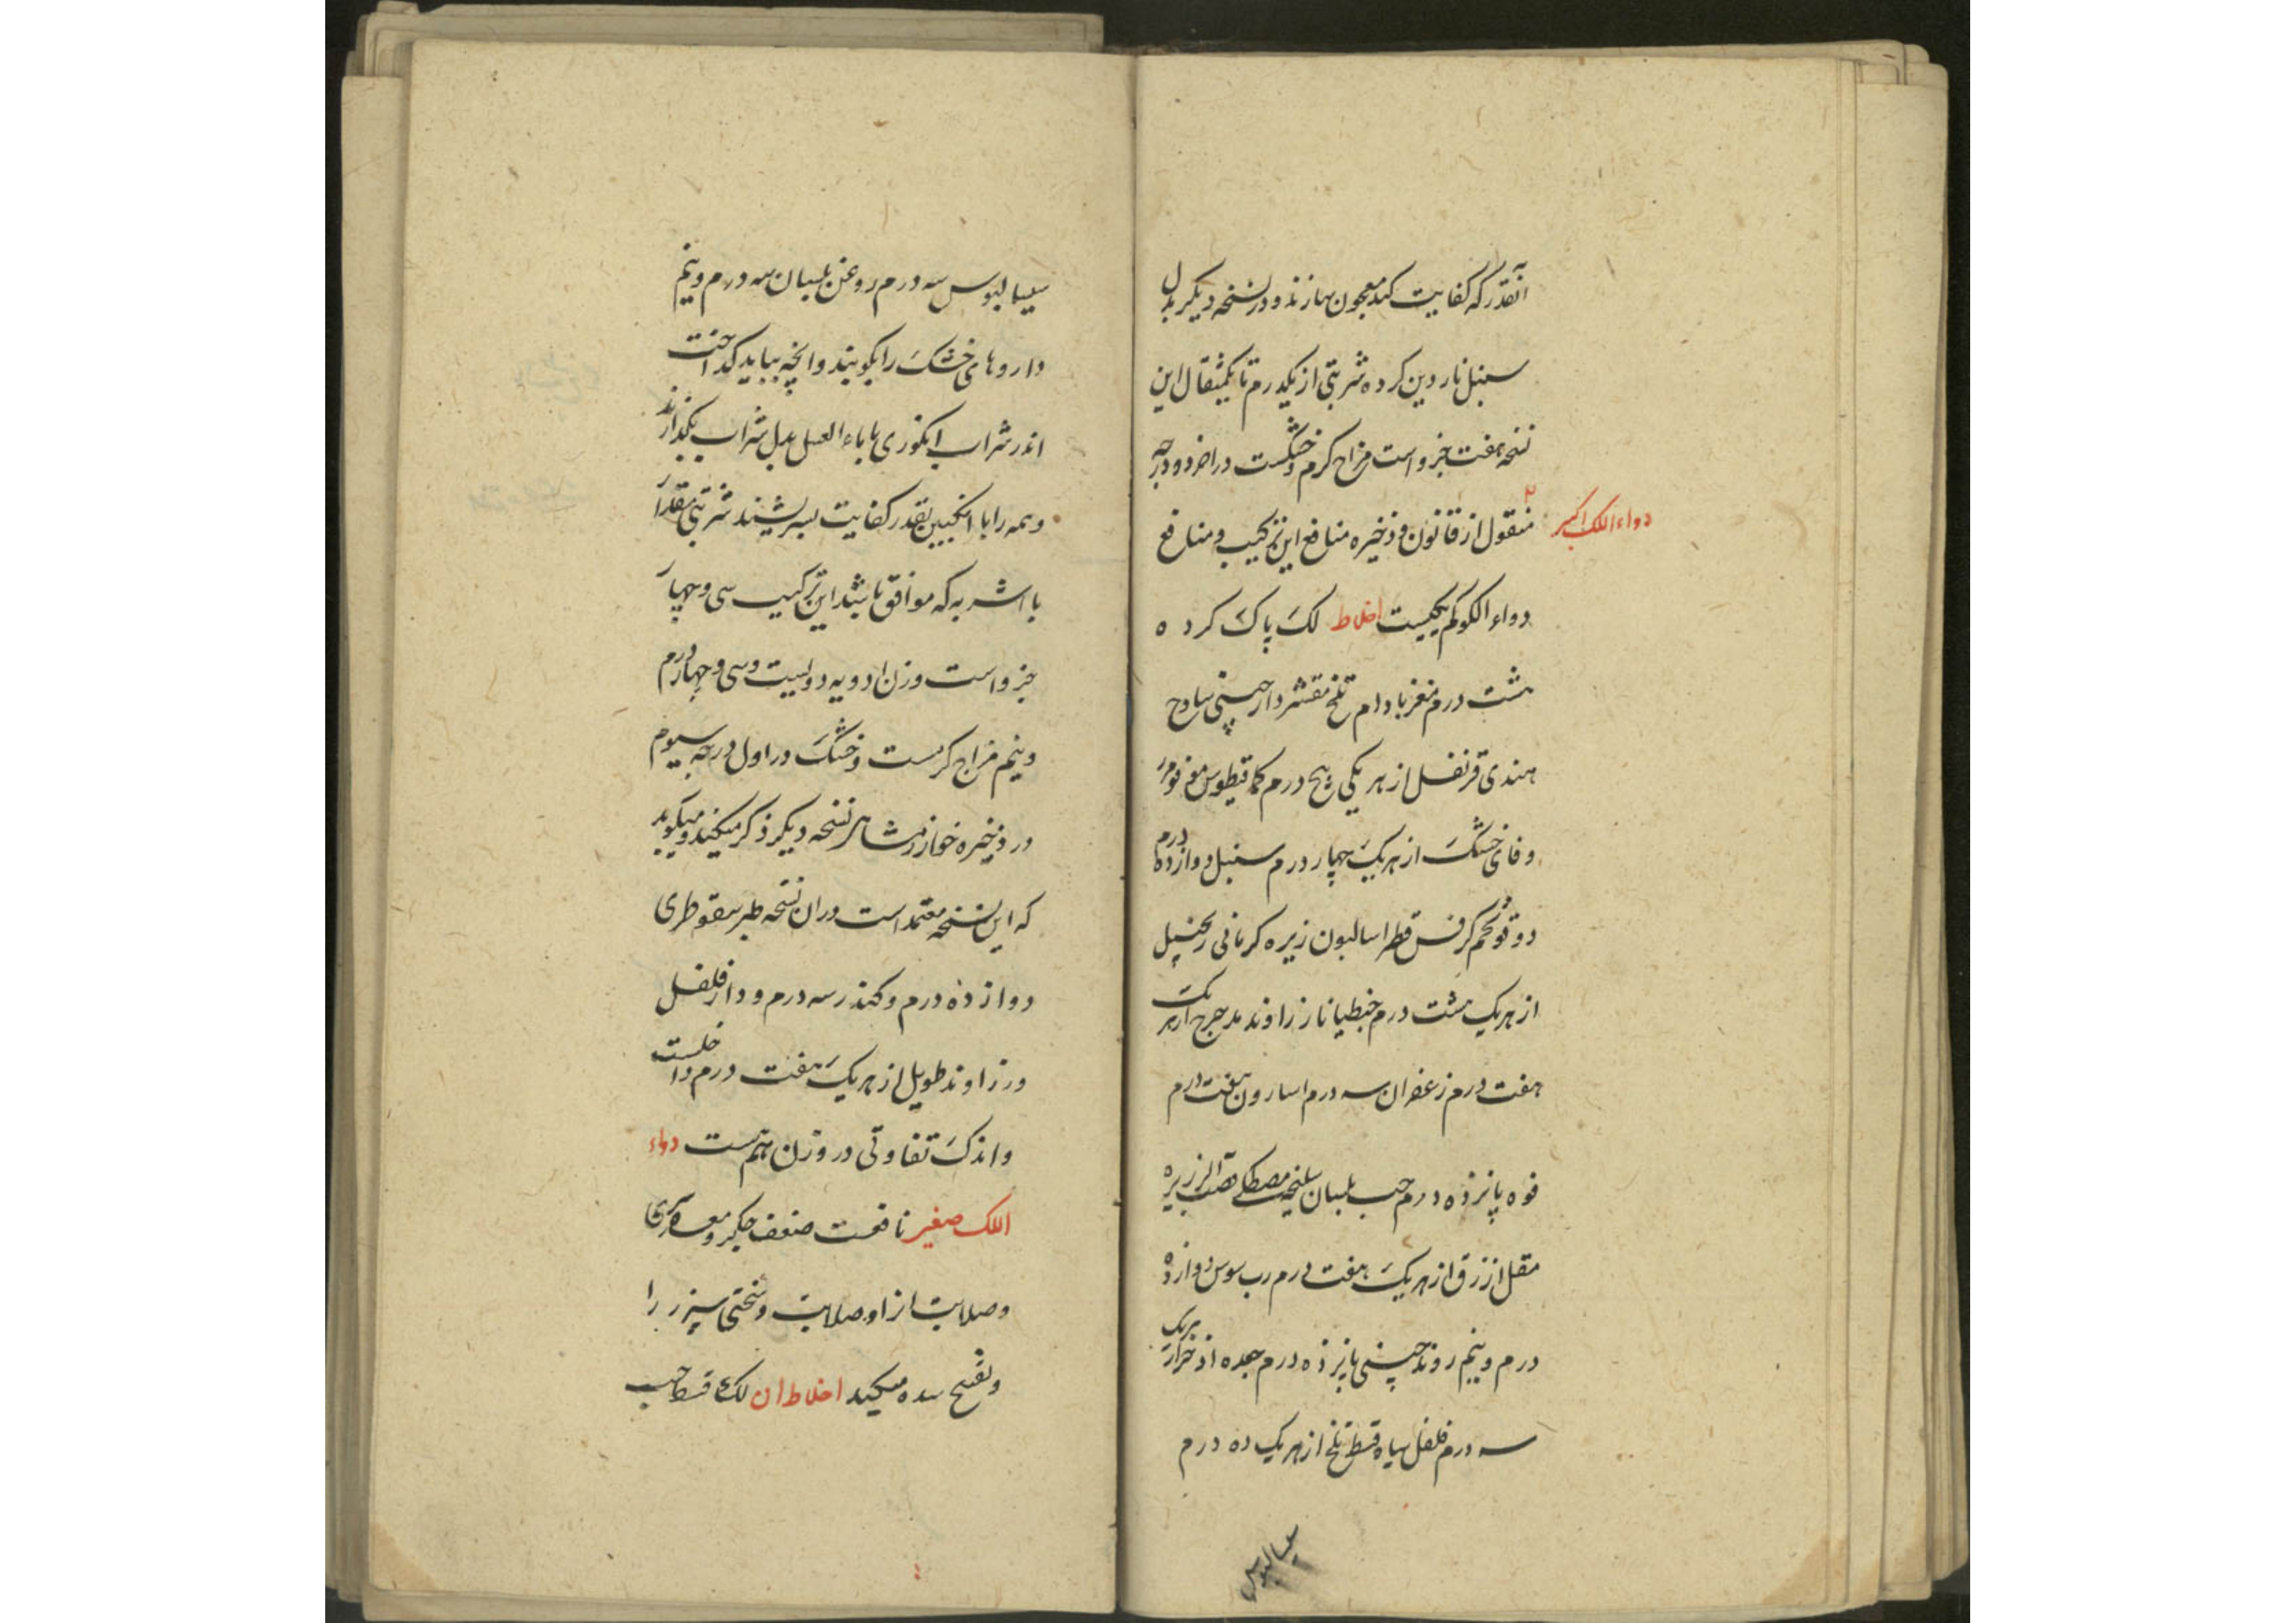 آنقدر که کفایت کند معجون سازند و در نسخه دیگر بدل
سنبل ناردین کرده شربتی از یکدرم تا یکمثقال این
نسخه هفت جزو است مزاج گرم و خشکست در اخر دو درجه
دواء اللک اکبر
منقول از قانون و ذخیره منافع این ترکیب و منافع
دواء الکرکم یکیست اخلاط لک پاک کرده
هشت درم مغز بادام تلخ مقشر دارچینی سادج
هندی قرنفل از هر یکی پنج درم کمافیطوس مو فو مر
وفای خشک از هر یک چهار درم سنبل دوازده درم
دوقو تخم کرفس فطراسالیون زیره کرمانی زنجبیل
از هر یک هشت درم جنطیانا زراوند مدحرج از هر یک
هفت درم زعفران سه درم اسارون هفت درم
فوه پانزده درم حب بلسان سلیخه مصطکی قصب الزریره
مقل ازرق از هر یک هفت درم رب سوس دوازده
درم و نیم روند چینی پانزده درم جعده اذخر از هر یک
سه درم فلفل سیاه قسط تلخ از هر یک ده درم
سیسالیوس
سیسالیوس سه درم روغن بلسان سه درم و نیم
داروهای خشک را بکوبند و انچه بباید گداخت
اندر شراب انگوری یا ماء العسل بدل شراب بگدازند
و همه را با انگبین بقدر کفایت بسرشند شربتی مقدار
با اشربه که موافق باشد این ترکیب سی و چهار
جزو است وزن ادویه دویست و سی و چهار درم
و نیم مزاج گرمست و خشک در اول درجه سیوم
در ذخیره خوارزمشاهر نسخه دیگر ذکر میکند و میگوید
که این نسخه معتمد است دران نسخه صبر سقوطری
دوازده درم و کندر سه درم و دارفلفل
و زراوند طویل از هر یک هفت درم داخلست
و اندک تفاوتی در وزن هم هست دواء
اللک صغیر نافعست ضعف جگر و معده سرد را
و صلابت از او صلابت و سختی سپرز را
و تفتیح سده میکند اخلاط ان لک قسط حب